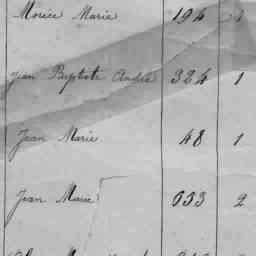 Marie 194
Jean Baptiste André 324 1
Jean Marie 48 1
Jean Marie 633 2